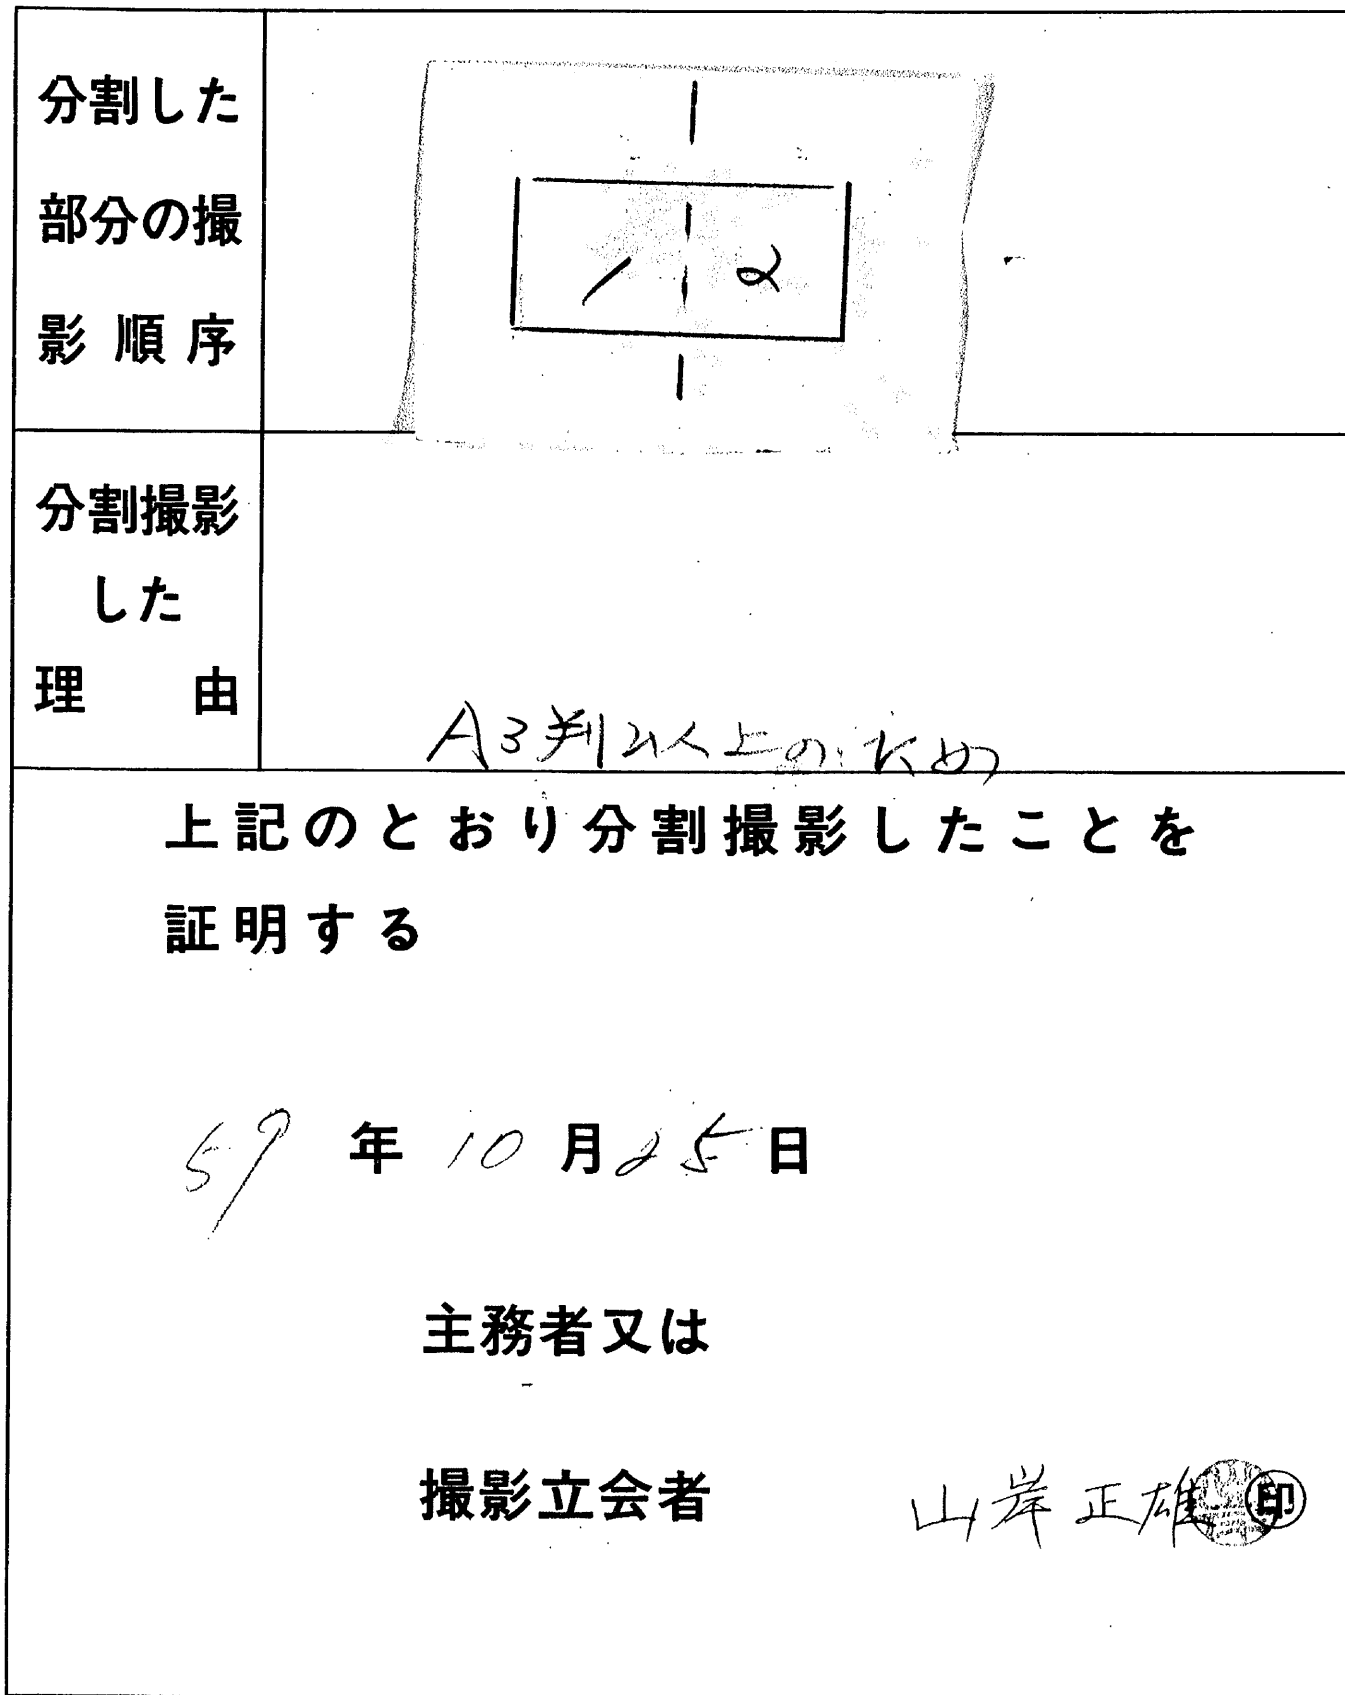 分割した
部分の撮
影順序
1 2
分割撮影
した
理由
A3判以上のため
上記のとおり分割撮影したことを
証明する
59年10月25日
主務者又は
撮影立会者 山岸正雄 印